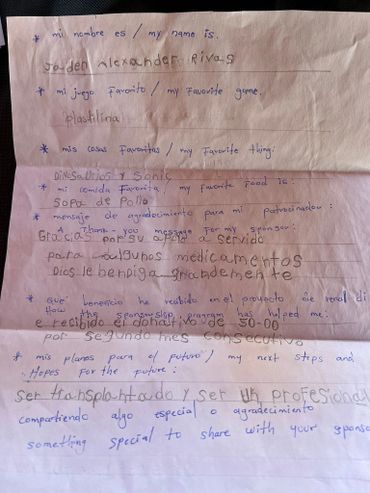 * mi nombre es / my name is.
Jaden Alexander Rivas
* mi juego Favorito / my Favourite game.
Plastilina
* mis cosas Favoritas / my Favorite thing:
DINOSAURIOS Y SONIC
* mi comida Favorita, my Favorite Food is:
SOPA DE Pollo
* mensaje de agradecimiento para mi patrocinador:
A Thank-you message For my sponsor:
Gracias por su apoyo a servido
para algunos medicamentos
Dios le bendiga grandemente
* que beneficio he recibido en el proyecto de renal
How the sponsorship program has helped me:
e recibido el donativo de 50-00
por segundo mes consecutivo
* mis planes para el futuro / my next steps and
Hopes For the future:
ser transplantado y ser un profesional
compartiendo algo especial o agradecimiento
something special to share with your